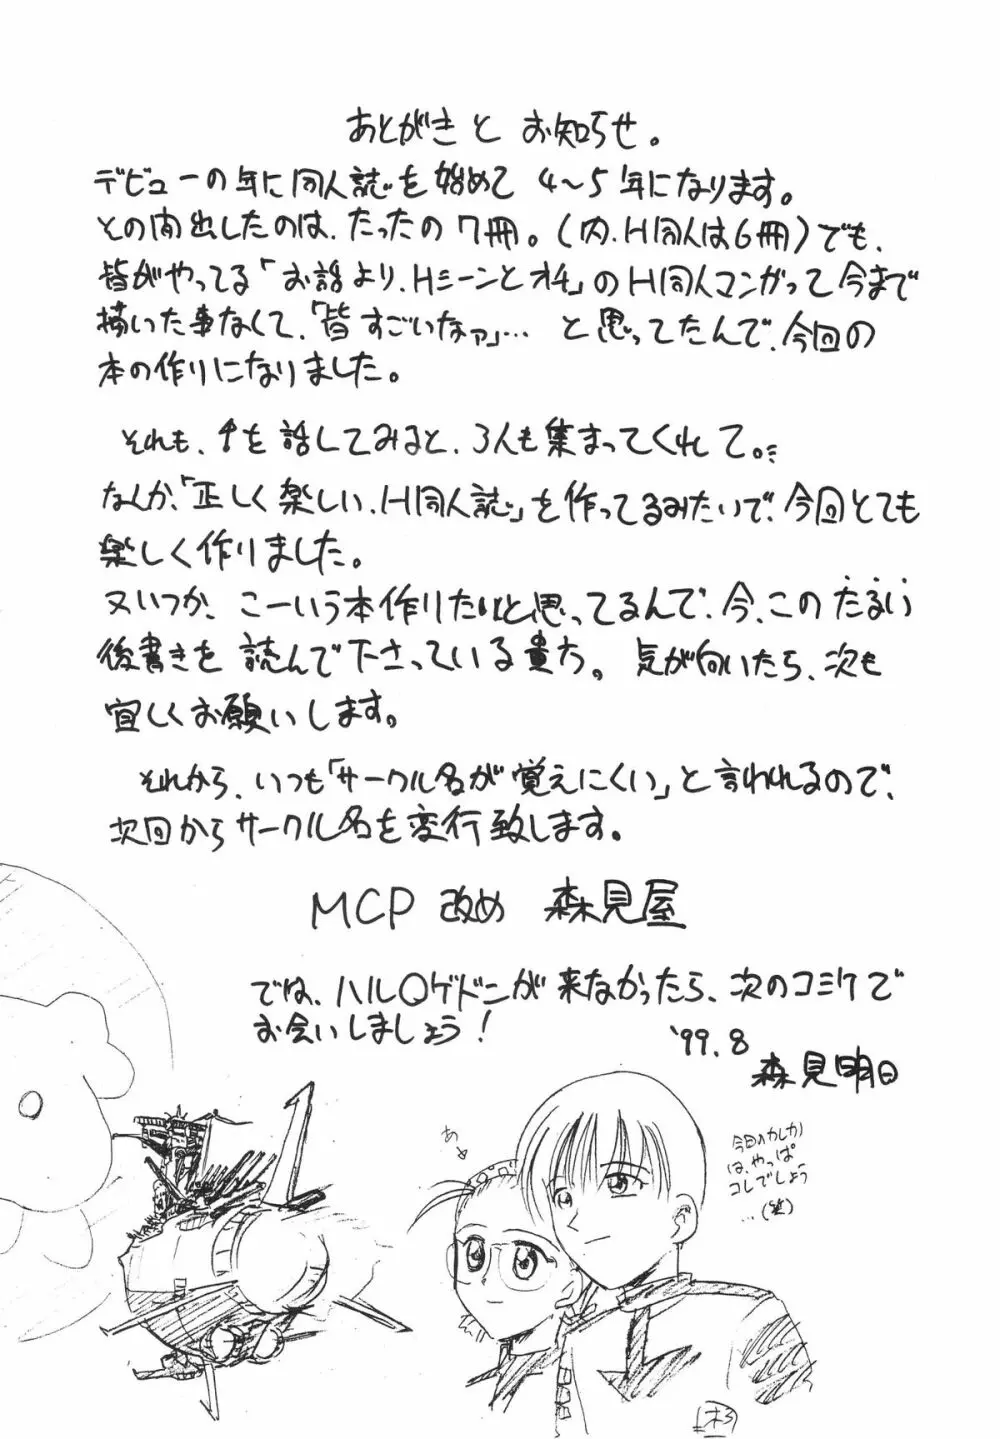 あとがきと お知らせ。
デビューの年に同人誌を始めて 4〜5年になります。
その間出したのは、たったの7冊。(内、H同人は6冊)でも、
皆がやってる「お話より、Hシーンとオチ」のH同人マンガって今まで
描いた事なくて、「皆すごいなァ」… と思ってたんで、今回の
本の作りになりました。
それも、↑を話してみると、3人も集まってくれて。
なんか、「正しく楽しい、H同人誌」を作ってるみたいで、今回とても
楽しく作りました。
又いつか、こーいう本作りたいと思ってるんで、今、このたるい
後書きを読んで下さっている貴方。気が向いたら、次も
宜しくお願いします。
それから、いつも「サークル名が覚えにくい」と言われるので、
次回からサークル名を変行致します。
MCP 改め 森見屋
では、ハル〇ゲドンが来なかったら、次のコミケで
お会いしましょう!
'99.8
森見明日
あ
今回のカレカ
は、やっぱ
コレでしょう
…(笑)